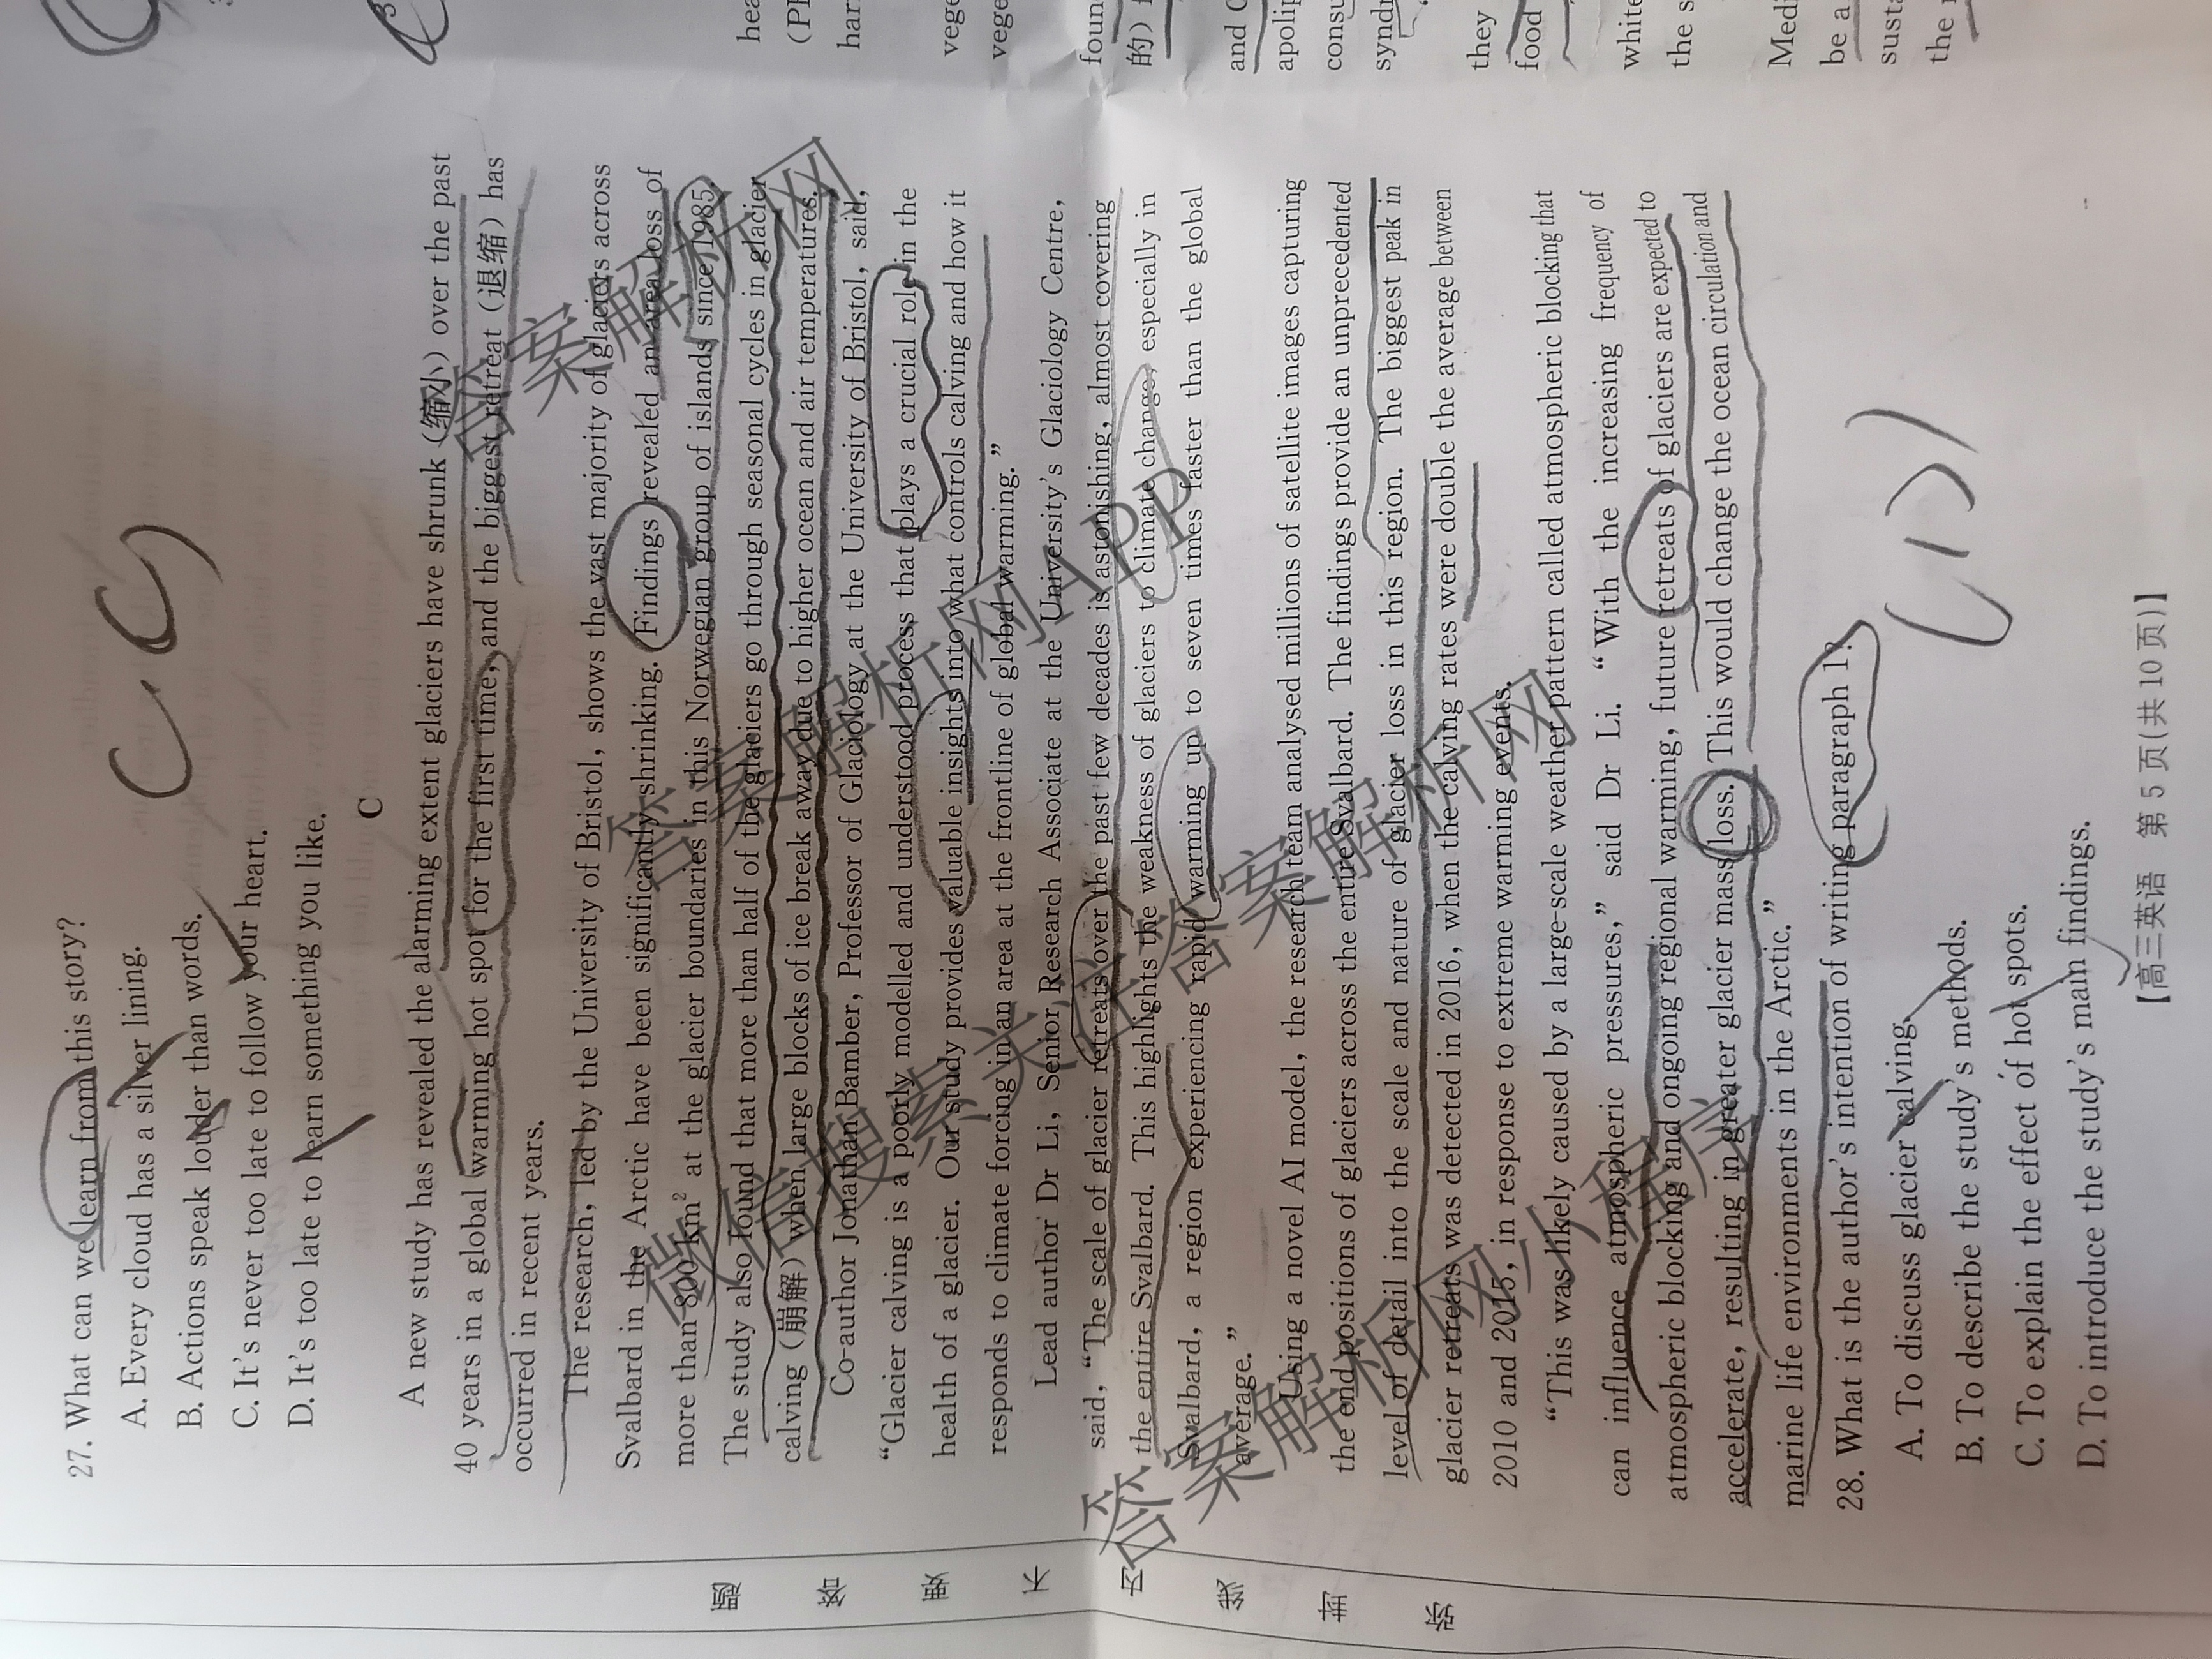 27. What can we learn from this story?
A. Every cloud has a silver lining.
B. Actions speak louder than words.
C. It's never too late to follow your heart.
D. It's too late to learn something you like.
C
A new study has revealed the alarming extent glaciers have shrunk (缩小) over the past
40 years in a global warming hot spot for the first time, and the biggest retreat (退缩) has
occurred in recent years.
The research, led by the University of Bristol, shows the vast majority of glaciers across
Svalbard in the Arctic have been significantly shrinking. Findings revealed an area loss of
more than 800 km² at the glacier boundaries in this Norwegian group of islands since 1985.
The study also found that more than half of the glaciers go through seasonal cycles in glacier
calving (崩解) when large blocks of ice break away due to higher ocean and air temperatures.
Co-author Jonathan Bamber, Professor of Glaciology at the University of Bristol, said,
“Glacier calving is a poorly modelled and understood process that plays a crucial role in the
health of a glacier. Our study provides valuable insights into what controls calving and how it
responds to climate forcing in an area at the frontline of global warming.”
Lead author Dr Li, Senior Research Associate at the University's Glaciology Centre,
said, “The scale of glacier retreats over the past few decades is astonishing, almost covering
the entire Svalbard. This highlights the weakness of glaciers to climate change, especially in
Svalbard, a region experiencing rapid warming up to seven times faster than the global
average.”
Using a novel AI model, the research team analysed millions of satellite images capturing
the end positions of glaciers across the entire Svalbard. The findings provide an unprecedented
level of detail into the scale and nature of glacier loss in this region. The biggest peak in
glacier retreats was detected in 2016, when the calving rates were double the average between
2010 and 2015, in response to extreme warming events.
“This was likely caused by a large-scale weather pattern called atmospheric blocking that
can influence atmospheric pressures,” said Dr Li. “With the increasing frequency of
atmospheric blocking and ongoing regional warming, future retreats of glaciers are expected to
accelerate, resulting in greater glacier mass loss. This would change the ocean circulation and
marine life environments in the Arctic.”
28. What is the author's intention of writing paragraph 1?
A. To discuss glacier calving.
B. To describe the study's methods.
C. To explain the effect of hot spots.
D. To introduce the study's main findings.
【高三英语 第 5 页(共 10 页)】
hea
(PI
har
vege
vege
foun
的) f
and C
apolip
consu
syndr
they
food
white
the s
Medi
be a
susta
the r
题
答
要
不
内
线
封
弥
答案解析网
答案解析网APP
微信搜索关注答案解析网
答案解析网小程序